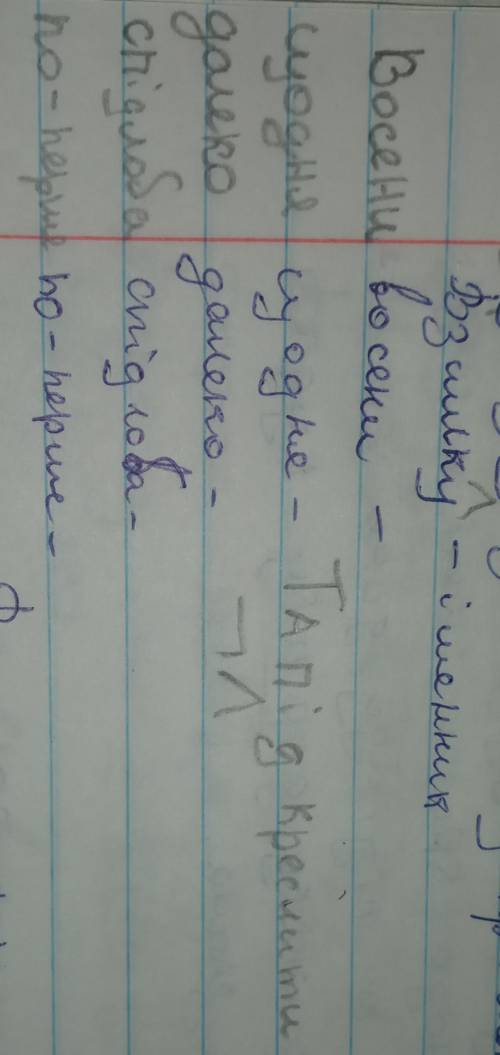 Взимку - іменник
Восени восени -
щодня щодня - Та підкреслити
далеко далеко - ¬ ^
спідлоба спідлоба -
по-перше по-перше -